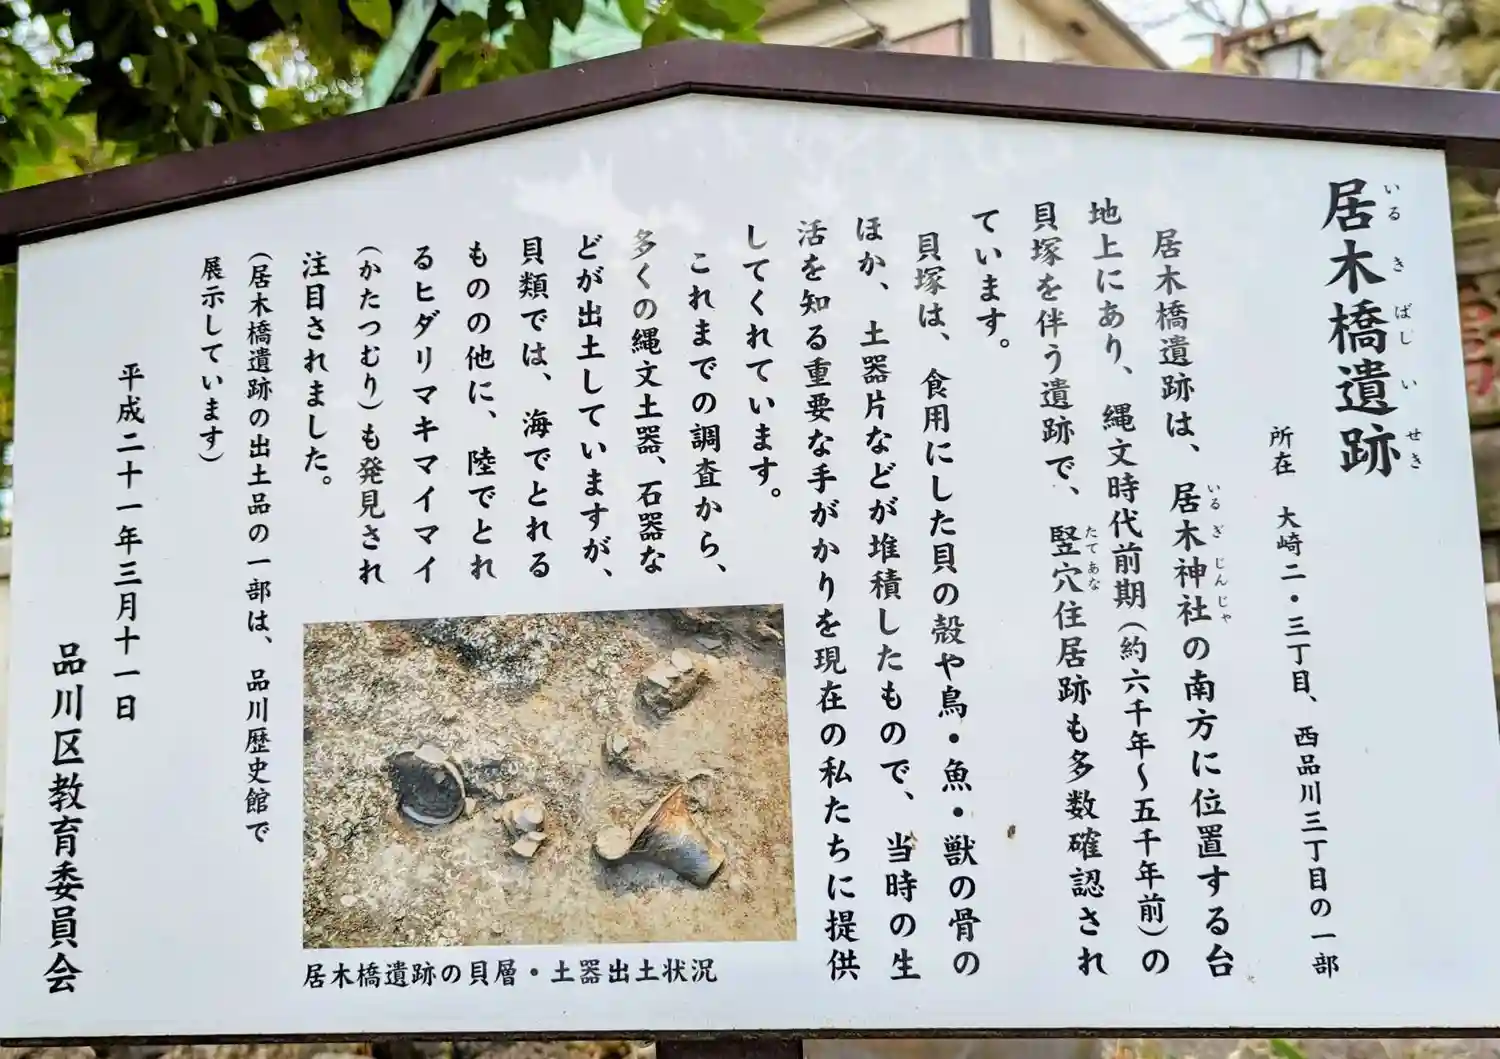 居木橋遺跡
いるきばしいせき
所在 大崎二・三丁目、西品川三丁目の一部
居木橋遺跡は、居木神社の南方に位置する台
いるぎじんじゃ
地上にあり、縄文時代前期(約六千年〜五千年前)の
貝塚を伴う遺跡で、竪穴住居跡も多数確認され
たてあな
ています。
貝塚は、食用にした貝の殻や鳥・魚・獣の骨の
ほか、土器片などが堆積したもので、当時の生
活を知る重要な手がかりを現在の私たちに提供
してくれています。
これまでの調査から、
多くの縄文土器、石器な
どが出土していますが、
貝類では、海でとれる
ものの他に、陸でとれ
るヒダリマキマイマイ
(かたつむり)も発見され
注目されました。
(居木橋遺跡の出土品の一部は、品川歴史館で
展示しています)
平成二十一年三月十一日
品川区教育委員会
居木橋遺跡の貝層・土器出土状況